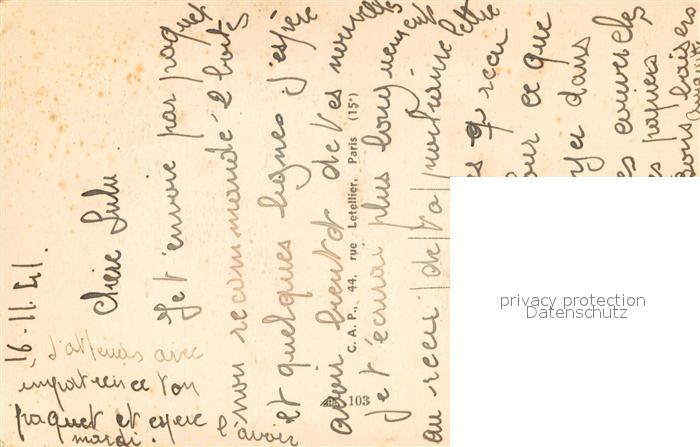 16-11-41.
Chère Lulu
Je t'envoie par paquet
non recommandé 2 boîtes
et quelques lignes j'espère
avoir bientôt de tes nouvelles
je t'écrirai plus longuement
au recu de ta prochaine lettre
es q recu
our ce que
yer dans
es
es papiers
Bons baisers
J'attends avec
impatience ton
paquet et espere
l'avoir
mardi.
C. A. P., 44, rue Letellier, Paris (15e)
103
privacy protection
Datenschutz